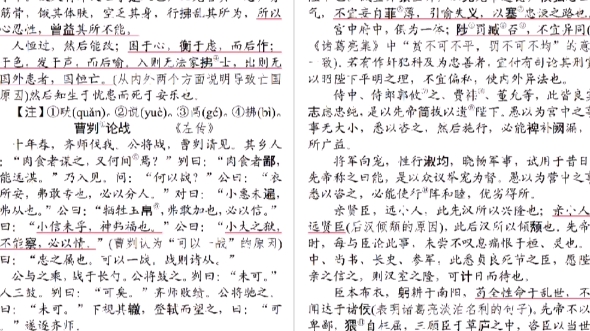 筋骨，饿其体肤，空乏其身，行拂乱其所为，所以
心忍性，曾益其所不能。
人恒过，然后能改；困于心，衡于虑，而后作；
于色，发于声，而后喻，入则无法家拂④士，出则无
国外患者，国恒亡。(从内外两个方面说明导致亡国
原因)然后知生于忧患而死于安乐也。
【注】①畎(quǎn)。②说(yuè)。③鬲(gé)。④拂(bì)。
曹刿①论战 《左传》
十年春，齐师伐我。公将战，曹刿请见。其乡人
：“肉食者谋之，又何间②焉？”刿曰：“肉食者鄙，
能远谋。”乃入见。问：“何以战？”公曰：“衣
所安，弗敢专也，必以分人。”对曰：“小惠未遍，
弗从也。”公曰：“牺牲玉帛，弗敢加也，必以信。”
曰：“小信未孚，神弗福也。”公曰：“小大之狱，
不能察，必以情。”(曹刿认为“可以一战”的原因)
曰：“忠之属也。可以一战，战则请从。”
公与之乘，战于长勺。公将鼓之。刿曰：“未可。”
人三鼓。刿曰：“可矣。”齐师败绩。公将驰之。
曰：“未可。”下视其辙，登轼而望之，曰：“可
。”遂逐齐师。
气，不宜妄自菲薄，引喻失义，以塞忠谏之路也
宫中府中，俱为一体；陟罚臧否，不宜异同(
《诸葛亮集》中“赏不可不平，罚不可不均”的意
一致)。若有作奸犯科及为忠善者，宜付有司论其刑
以昭陛下平明之理，不宜偏私，使内外异法也。
侍中、侍郎郭攸之、费祎、董允等，此皆良实
志虑忠纯，是以先帝简拔以遗陛下。愚以为宫中之
事无大小，悉以咨之，然后施行，必能裨补阙漏，
所广益。
将军向宠，性行淑均，晓畅军事，试用于昔日
先帝称之曰能，是以众议举宠为督。愚以为营中之
悉以咨之，必能使行阵和睦，优劣得所。
亲贤臣，远小人，此先汉所以兴隆也；亲小人
远贤臣(后汉倾颓的原因)，此后汉所以倾颓也。先帝
时，每与臣论此事，未尝不叹息痛恨于桓、灵也。
中、尚书、长史、参军，此悉贞良死节之臣，愿陛
亲之信之，则汉室之隆，可计日而待也。
臣本布衣，躬耕于南阳，苟全性命于乱世，不
闻达于诸侯(表明诸葛亮淡泊名利的句子)。先帝不以
卑鄙，猥自枉屈，三顾臣于草庐之中，咨臣以当世